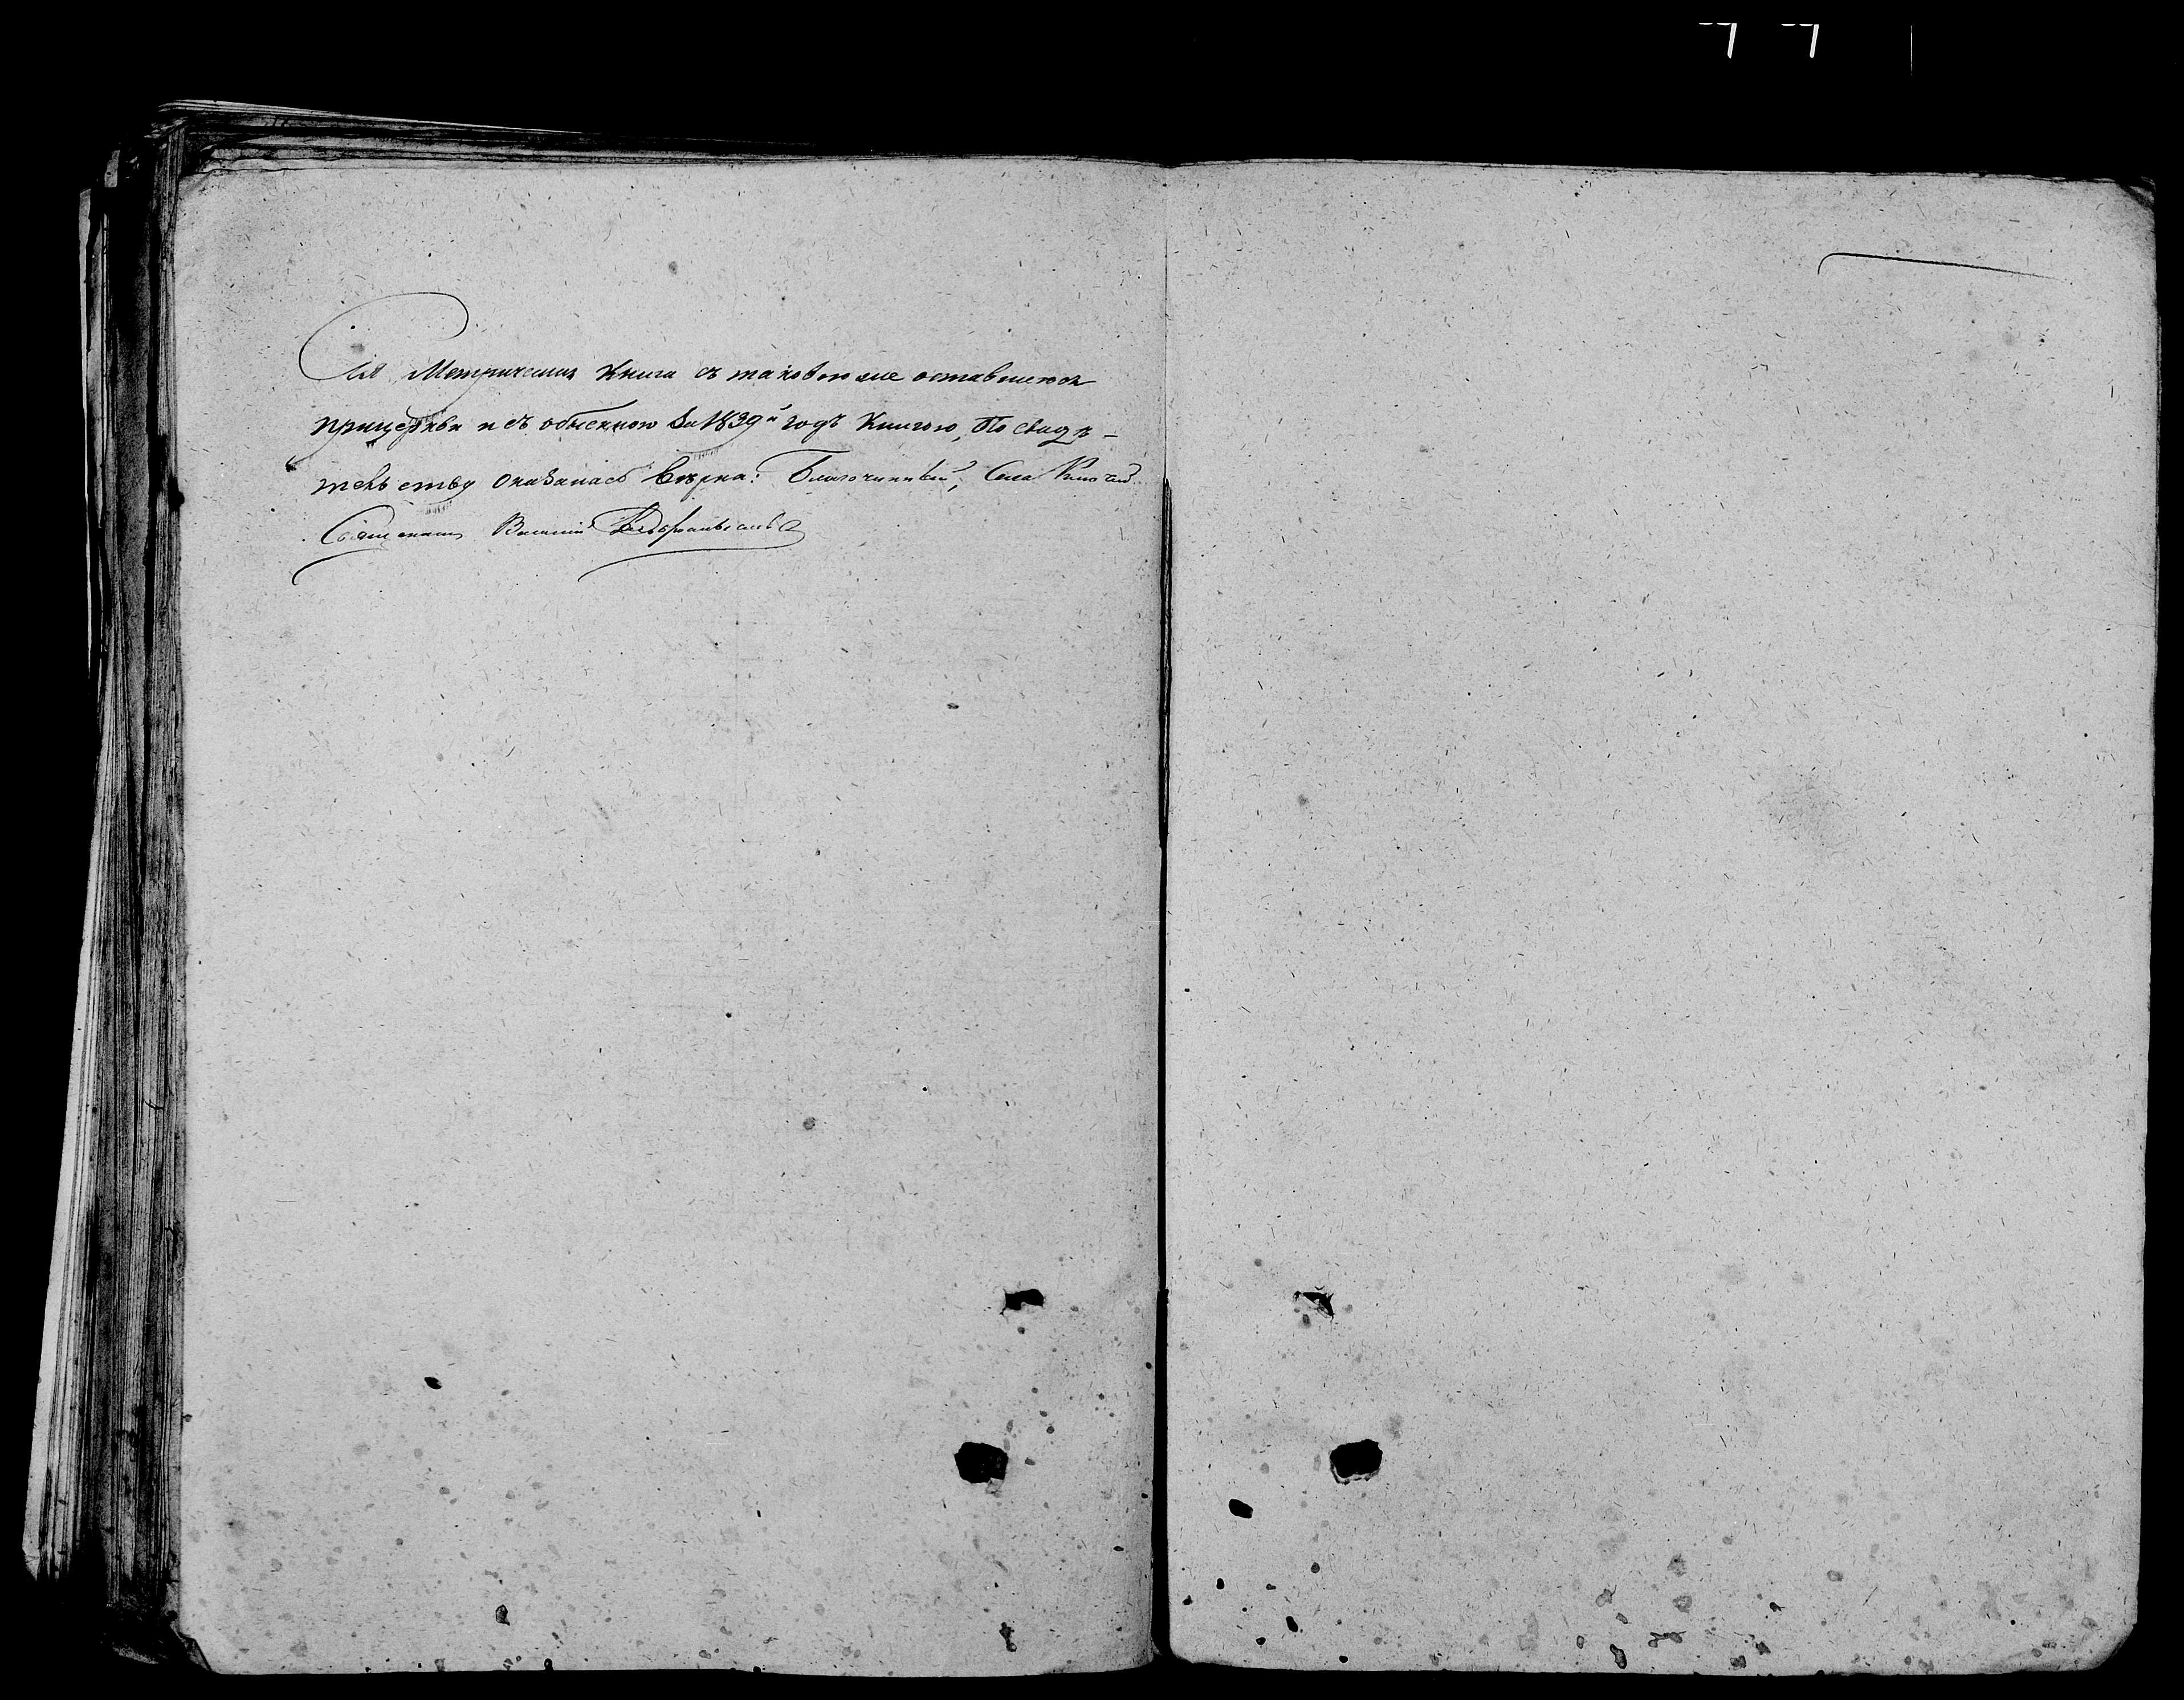 Сія Метрическая Книга съ таковою же оставшеюся
прицерькви и съ обыскною за 1839й годъ Книгою, По свидѣ-
тельству оказалась вѣрна: Благочинный, Села
Священникъ Василій